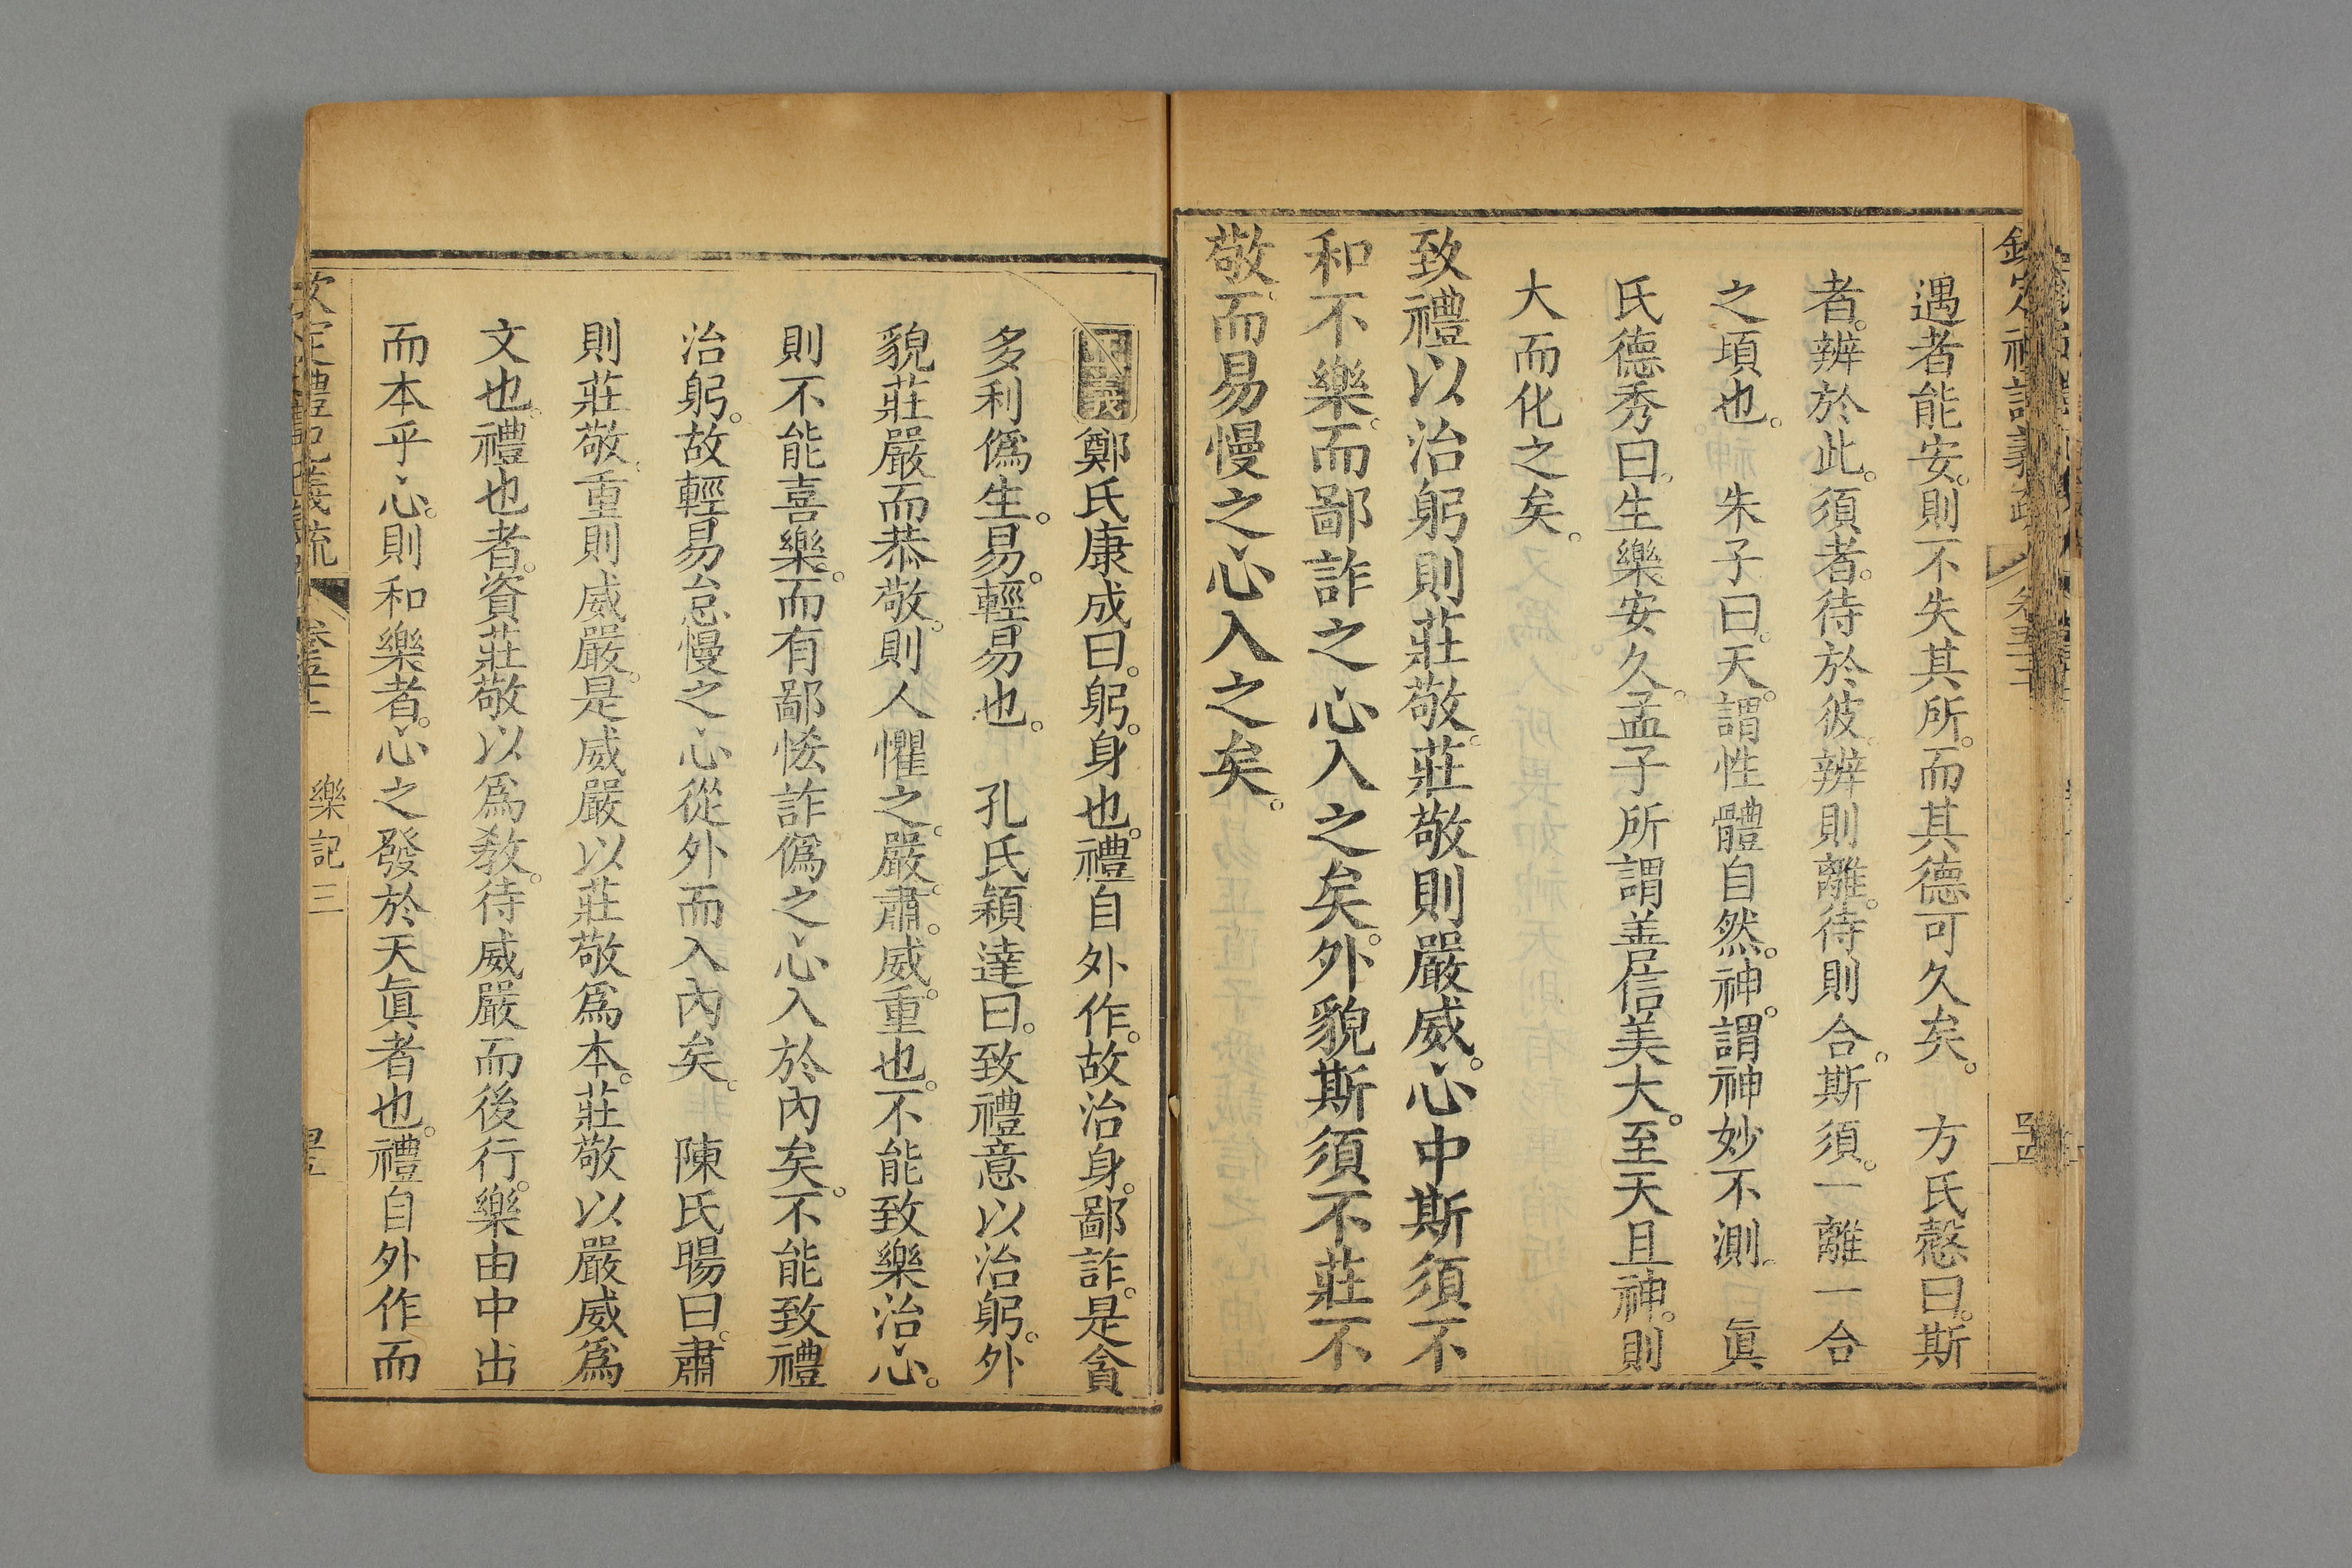 遇者能安。則不失其所。而其德可久矣。　方氏慤曰。斯
者。辨於此。須者。待於彼。辨則離。待則合。斯須。一離一合
之頃也。　朱子曰。天。謂性體自然。神。謂神妙不測。　眞
氏德秀曰。生樂安久。孟子所謂善信美大。至天且神。則
大而化之矣。
致禮以治躬則莊敬。莊敬則嚴威。心中斯須不
和不樂。而鄙詐之心入之矣。外貌斯須不莊不
敬。而易慢之心入之矣。
正義鄭氏康成曰。躬。身也。禮自外作。故治身。鄙詐。是貪
多利僞生。易。輕易也。　孔氏穎達曰。致禮意以治躬。外
貌莊嚴而恭敬。則人懼之。嚴。肅。威。重也。不能致樂治心。
則不能喜樂。而有鄙恡詐僞之心入於內矣。不能致禮
治躬。故輕易怠慢之心從外而入內矣。　陳氏暘曰。肅
則莊敬。重則威嚴。是威嚴以莊敬爲本。莊敬以嚴威爲
文也。禮也者。資莊敬以爲教。待威嚴而後行。樂由中出
而本乎心。則和樂者。心之發於天眞者也。禮自外作而
樂記三